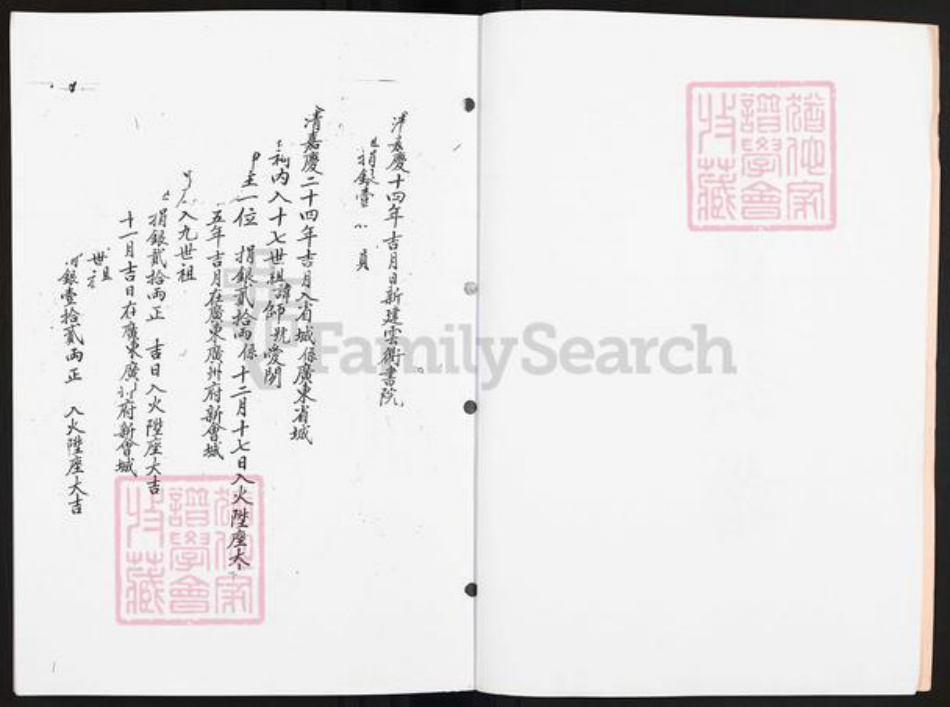 嘉慶十四年吉月日新建雲衢書院
捐銀壹 員
清嘉慶二十四年吉月入省城係廣東省城
祠內入十七世祖諱師號愛閒
主一位 捐銀貳拾兩係十二月十七日入火陞座大
五年吉月在廣東廣州府新會城
入九世祖
捐銀貳拾兩正 吉日入火陞座大吉
十一月吉日在廣東廣州府新會城
世祖
銀壹拾貳兩正 入火陞座大吉
譜學會
收藏
譜學會
收藏
FamilySearch